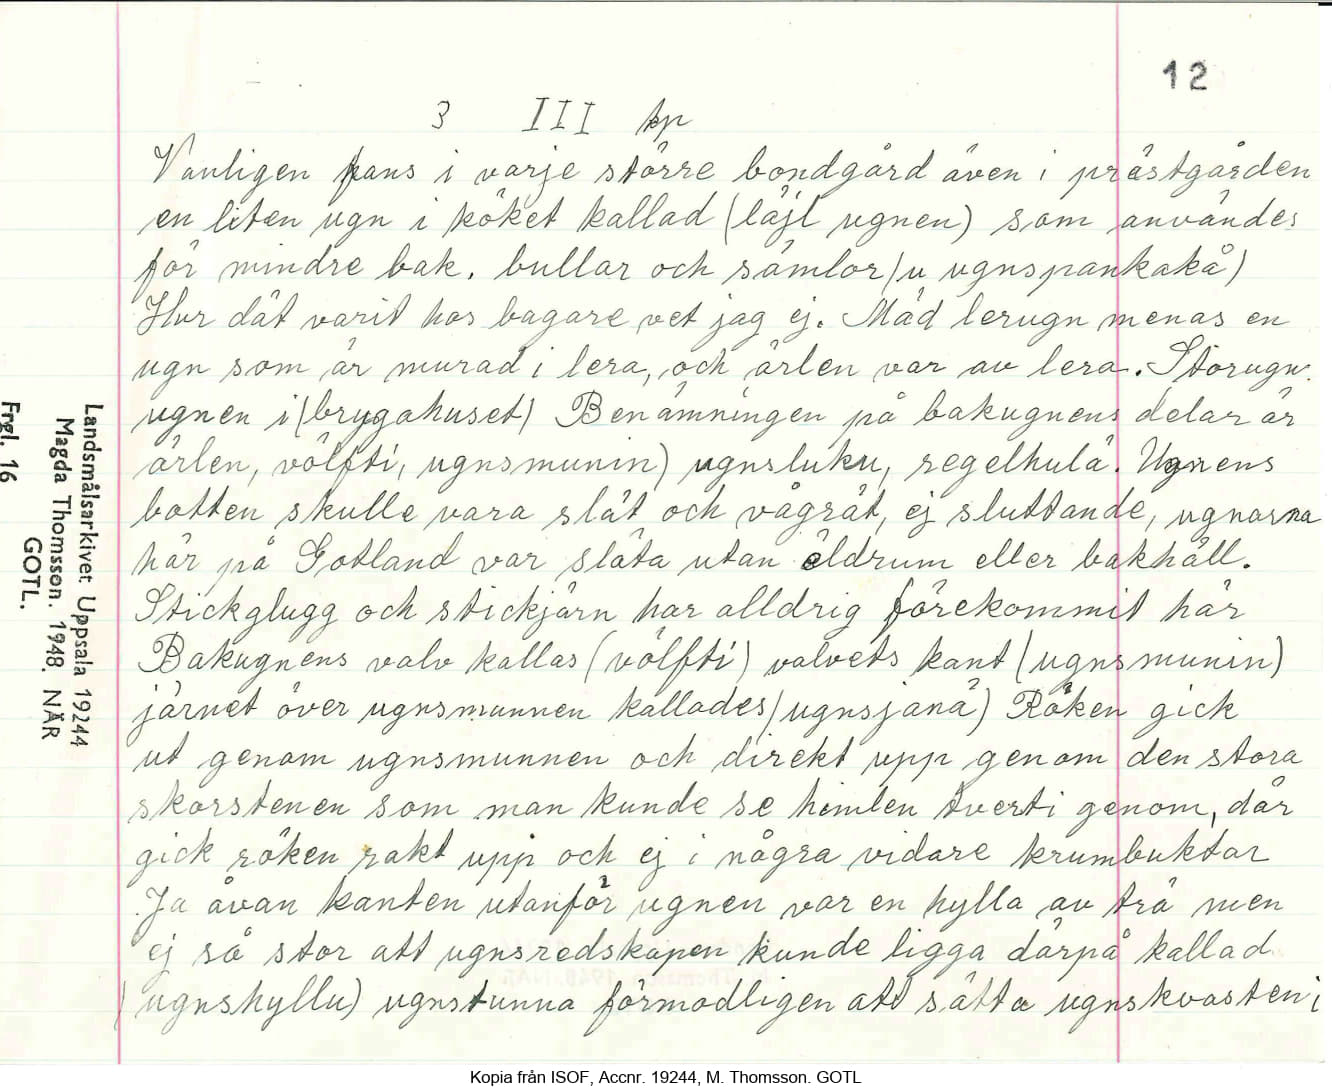 12
3 III kp
Vanligen fans i varje större bondgård även i prästgården
en liten ugn i köket kallad (läjl ugnen) som användes
för mindre bak. bullar och sämlor (u ugnspankakå)
Hur dät varit hos bagare vet jag ej. Mäd lerugn menas en
ugn som är murad i lera, och ärlen var av lera. Storugn.
ugnen i (brygahuset) Benämningen på bakugnens delar är
ärlen, völfti, ugnsmunin) ugnsluku, regelhulä. Ugnens
botten skulle vara slät och vågrät, ej sluttande, ugnarna
här på Gotland var släta utan äldrum eller bakhäll.
Stickglugg och stickjärn har alldrig förekommit här
Bakugnens valv kallas (völfti) valvets kant (ugnsmunin)
järnet över ugnsmunnen kallades (ugnsjanä) Röken gick
ut genom ugnsmunnen och direkt upp genom den stora
skorstenen som man kunde se himlen tverti genom, där
gick röken rakt upp och ej i några vidare krumbuktar
Ja åvan kanten utanför ugnen var en hylla av trä men
ej så stor att ugnsredskapen kunde ligga därpå kallad
(ugnshyllu) ugnstunna förmodligen att sätta ugnskvasten i
Landsmålsarkivet Uppsala 19244
Magda Thomsson. 1948. NÄR
GOTL.
Frgl. 16
Kopia från ISOF, Accnr. 19244, M. Thomsson. GOTL